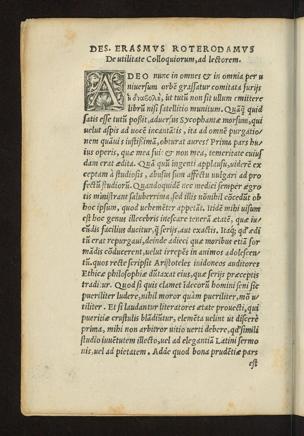 DES. ERASMVS ROTERODAMVS
De utilitate Colloquiorum, ad lectorem.
ADEO nunc in omnes & in omnia per u
niuersum orbē grassatur comitata furijs
ut tutū non sit ullum emittere
librū nisi satellitio munitum. Quāq̃ quid
satis esse tuti possit, aduersus sycophantæ morsum, qui
uelut aspis ad uocē incantātis, ita ad omnē purgatio/
nem quāuis iustissimā, obturat aures? Prima pars hu
ius operis, quæ mea fuit & non mea, temeritate cuius
dam erat ædita. Quā quū ingenti applausu, uiderē ex
ceptam à studiosis, abusus sum affectu uulgari ad pro
fectū studiorū. Quandoquidē nec medici semper ægro
tis ministrant saluberrima, sed illis nōnihil cōcedūt ob
hoc ipsum, quod uehemēter appetūt. Itidē mihi uisum
est hoc genus illecebris inescare tenerā ætatē, quæ iu-
cūdis facilius ducitur, q̃ serijs, aut exactis. Itaq; qd' ædi
tū erat repurgaui, deinde adieci quæ moribus etiā for
mādis cōducerent, uelut irrepēs in animos adolescen-
tū, quos recte scripsit Aristoteles inidoneos auditores
Ethicæ philosophiæ dūtaxat eius, quæ serijs præceptis
traditur. Quod si quis clamet īdecorū homini seni sic
pueriliter ludere, nihil moror quàm pueriliter, mō u-
tiliter. Et si laudantur literatores ætate prouecti, qui
pueritiā crustulis blādiūtur, elemēta uelint ut discere
prima, mihi non arbitror uitio uerti debere, qd' simili
studio iuuētutem illecto, uel ad elegantiā Latini sermo
nis, uel ad pietatem. Adde quod bona prudētiæ pars
est